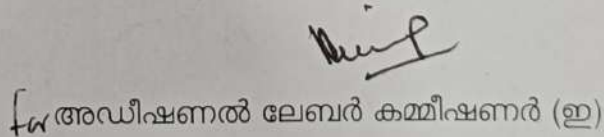 for അഡീഷണൽ ലേബർ കമ്മീഷണർ (ഇ)